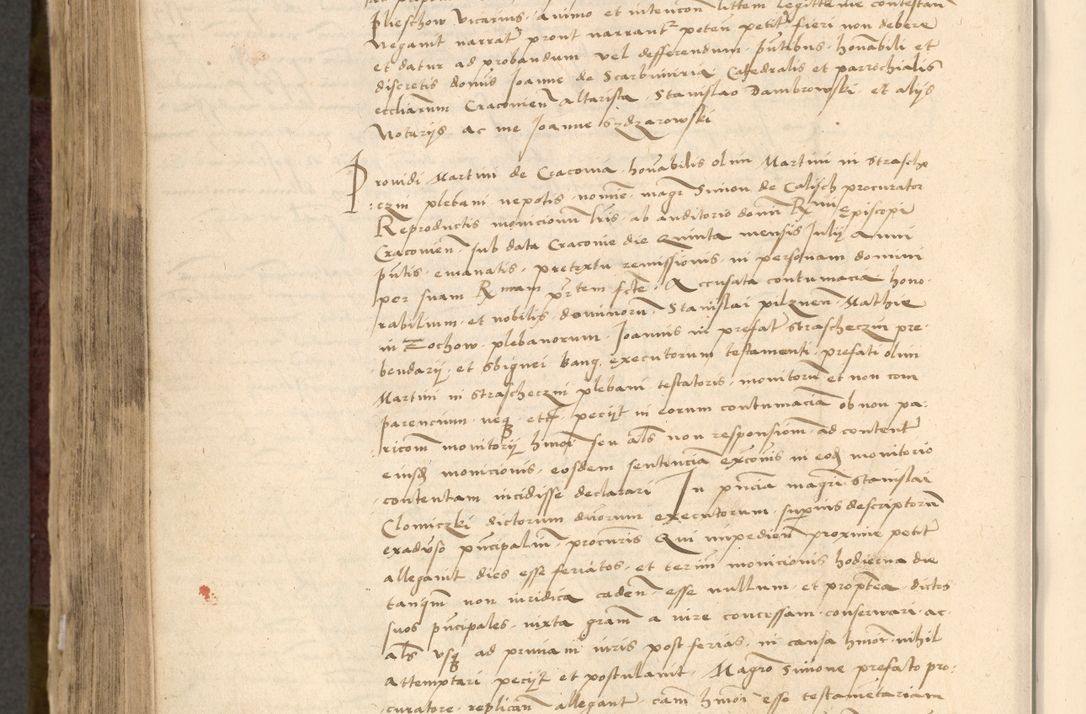 Plieschow vicarius animo et intencon littem legittime contestan
Negavit narrata prout narrantr peten petitr fieri non debere
et datur ad probandum vel defferendum pntibus honabili et
discretis domis Joanne de Scarbimiria Cathedralis et parrochialis
eccliarum Cracovien altarista Stanislao Dambrowski et alijs
Notarijs ac me Joanne Sydzarowski
Providi Martini de Cracovia honabilis olim Martini in Strasche
czin plebani nepotis noie magr Simon de Calisch procurator
Reproductis monicionum lris ab auditorio domi Rmi Episcopi
Cracovien sub data Cracovie die Quinta mensis Julij Anni
pntis emanatis pretextu remissionis in personam domini
per suam Rmam prtem fcte Accusata contumacia hono
rabilium et nobilis dominoru Stanislai pilznen Mathie
in Zochow plebanorum Joannis in prefat Strascheczin pre
bendarij et Sbignei Banq executorum testamenti prefati olim
Martini in Strascheczin plebani testatoris monitoru et non com
parencium neq etc pecijt in eorum contumacia ob non pa
ricom monitorij hmoi seu als non responsiom ad contenta
eiusd monicionis eosdem sentencia excois in eod monitorio
contentam incidisse declarari In pncia magri Stanislai
Clomiczki dictorum duorum executorum superius descriptoru
exadverso principaliu procuris Qui impedien proxime petita
allegavit dies esse feriatos et termi monicionis hodierna die
tanqm non iuridica caden esse nullum et propterea dictos
suos principales iuxta gram a iure concessam conservari ac
als usq ad primam iuris post ferias in causa hmoi nihil
attemptari pecijt et postulavit Magro Simone prefato pro
curatore replican allegant cam hmoi esse testamentariam